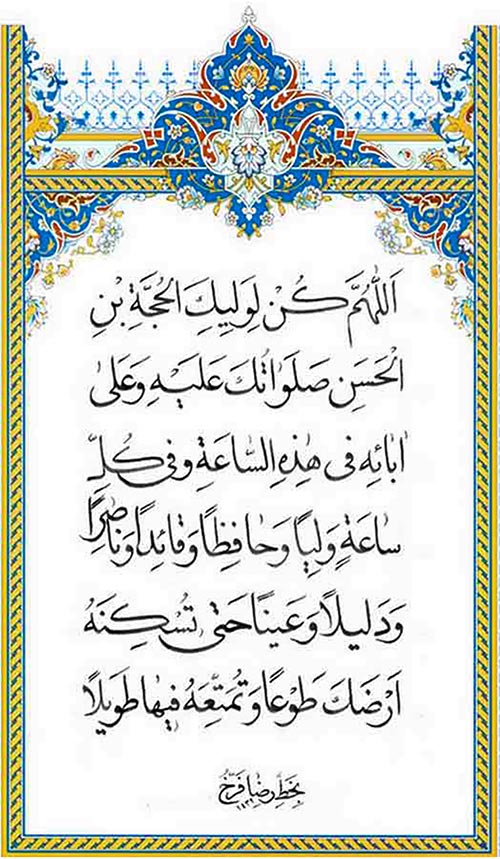 اَللّٰهُمَّ كُنْ لِوَلِيِّكَ الْحُجَّةِ بْنِ
الْحَسَنِ صَلَوٰاتُكَ عَلَيْهِ وَعَلىٰ
اٰبٰائِهِ فى هٰذِهِ السّٰاعَةِ وَفى كُلِّ
سٰاعَةٍ وَلِيًّا وَحٰافِظًا وَقٰائِدًا وَنٰاصِرًا
وَدَليلًا وَعَيْنًا حَتّٰى تُسْكِنَهُ
اَرْضَكَ طَوْعًا وَتُمَتِّعَهُ فيهٰا طَويلًا
بخطِّ رضا فرّخ